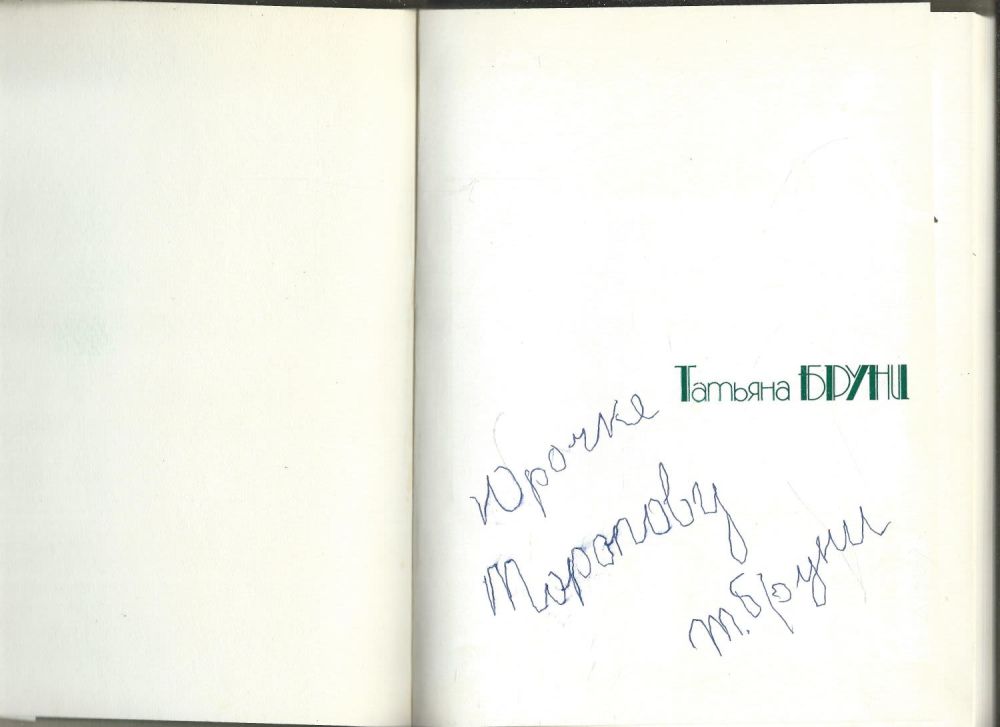 Татьяна БРУНИ
Юрочке
Торопову
Т. Бруни